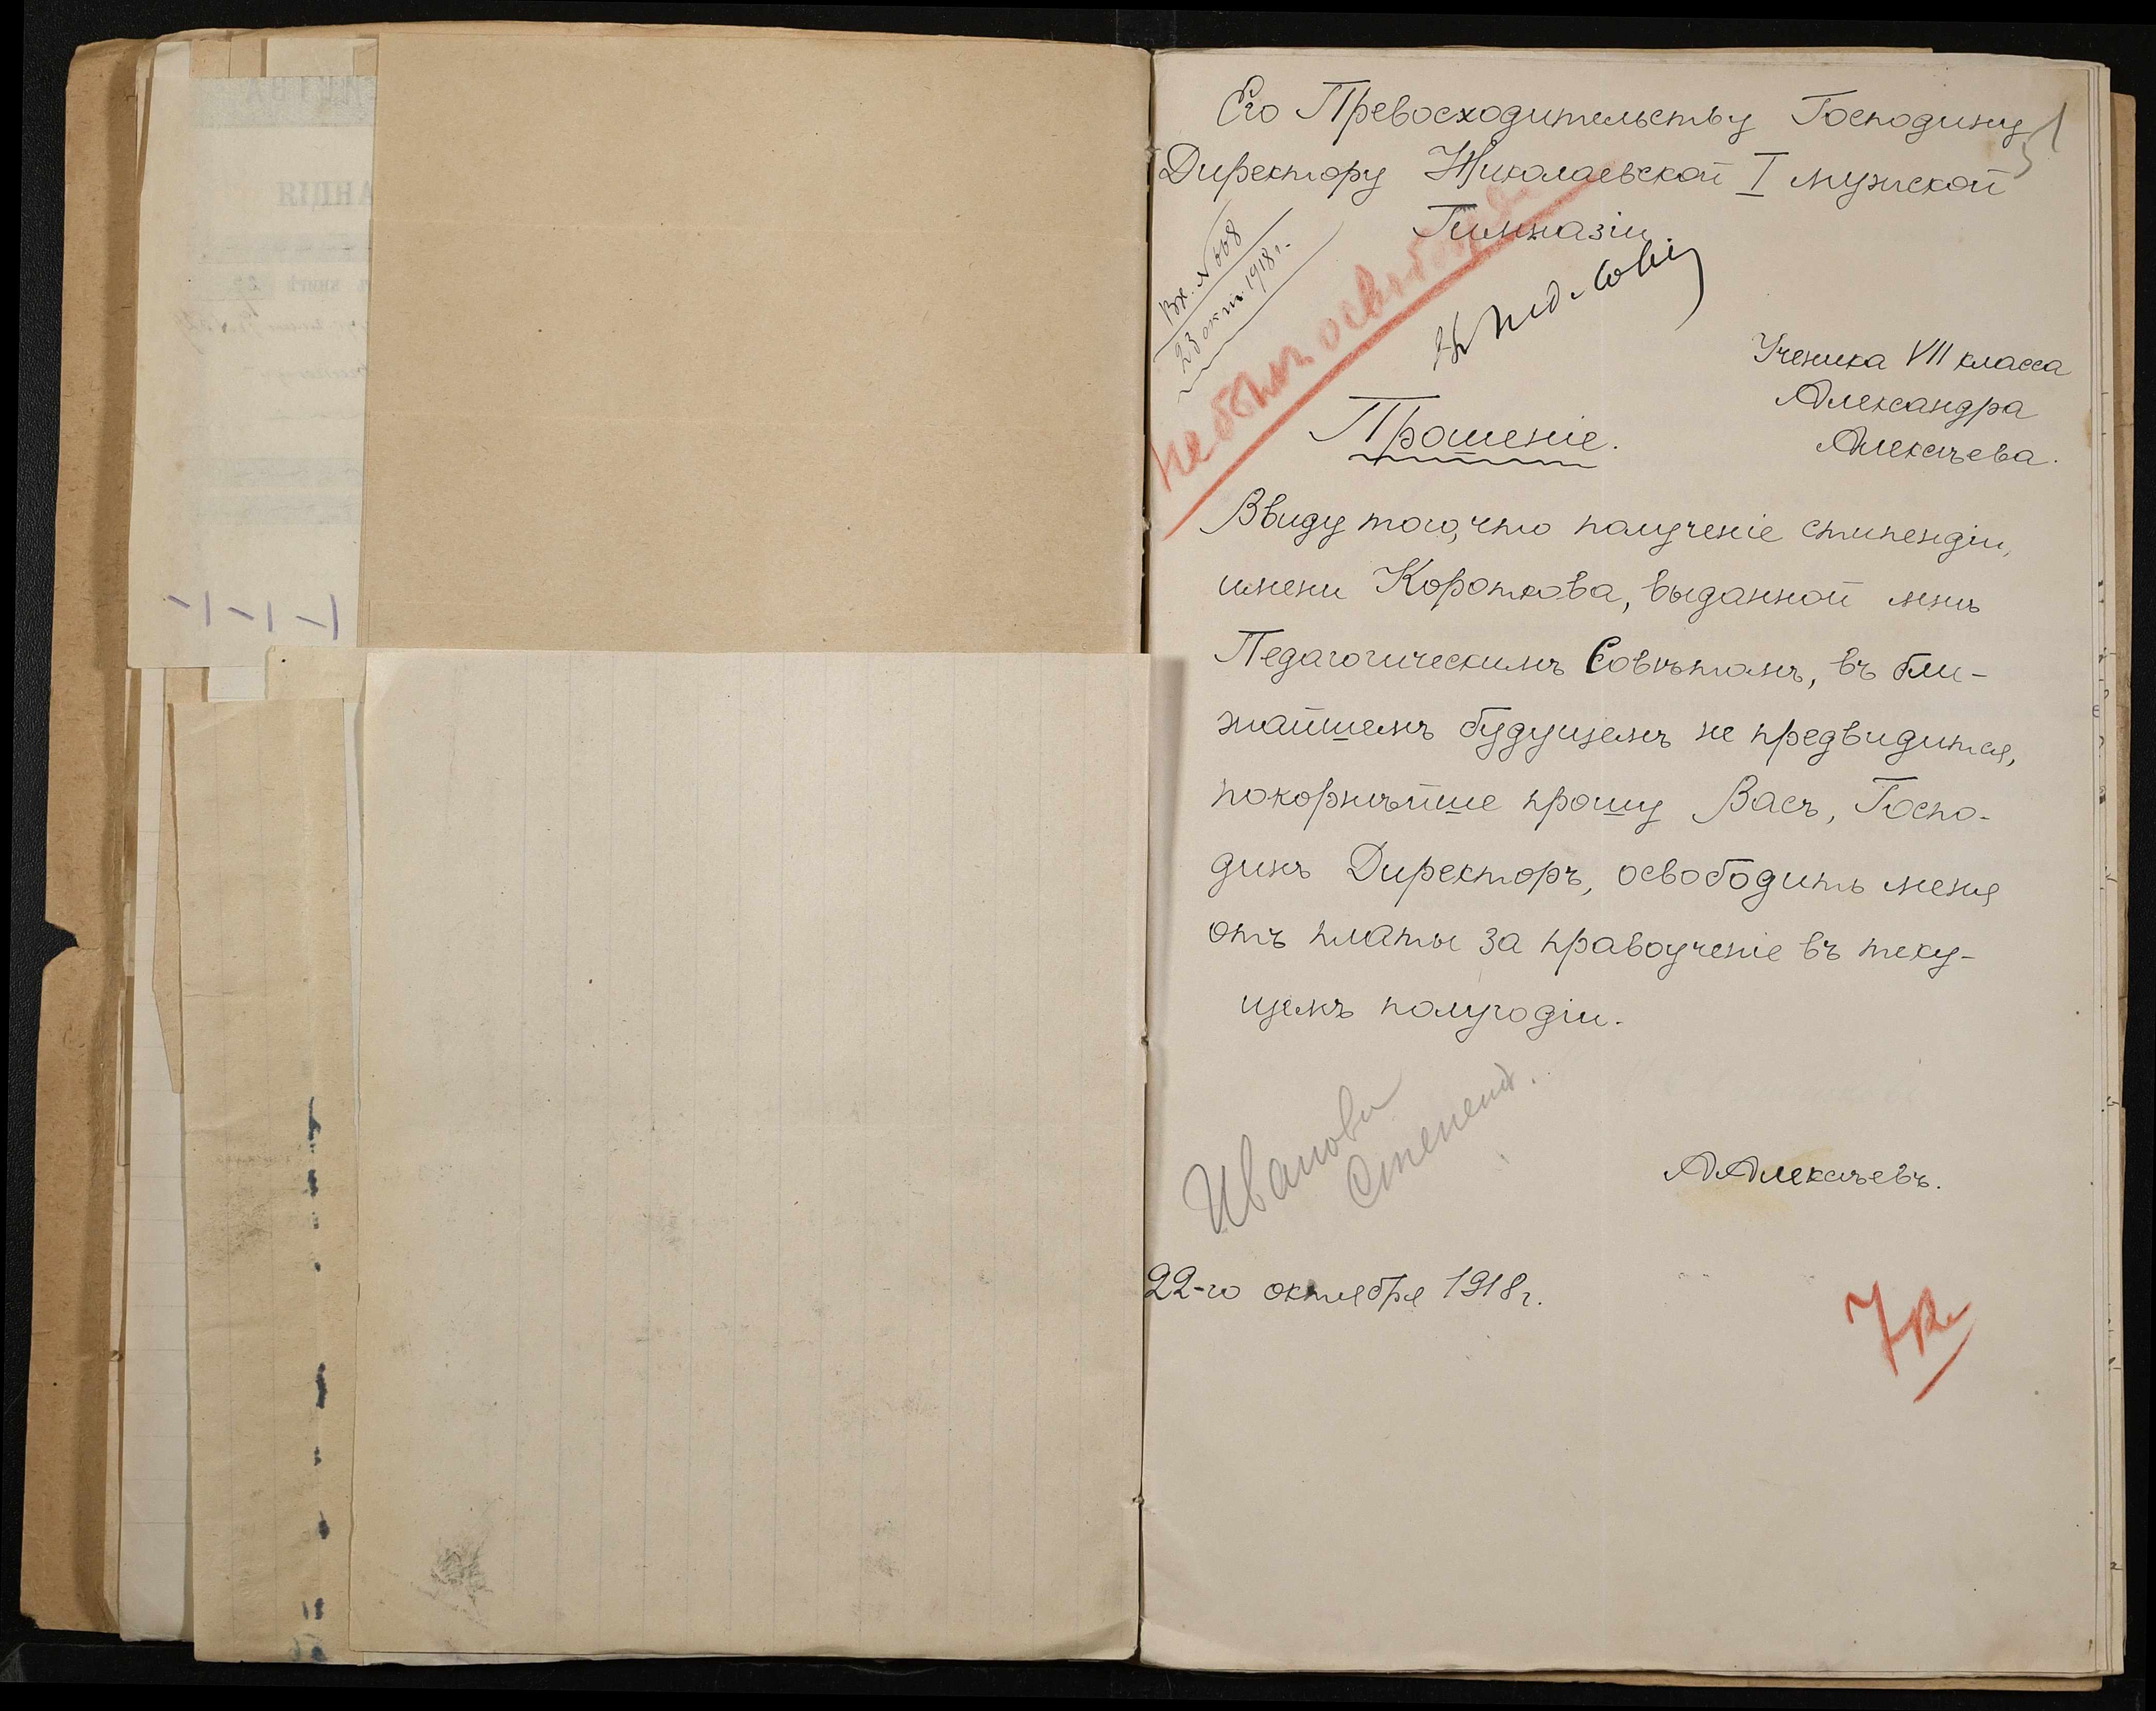 Его Превосходительству Господину
Директору Николаевской I мужской
Гимназіи.
Вх. № 668
23 окт. 1918 г.
не былъ освобожд
Въ Пед. Совѣ
Ученика VII класса
Александра
Алексѣева.
Прошеніе.
Ввиду того, что полученіе стипендіи,
имени Короткова, выданной мнѣ
Педагогическимъ Совѣтомъ, въ бли-
жайшемъ будущемъ не предвидится,
покорнѣйше прошу Васъ, Госпо-
динъ Директоръ, освободить меня
отъ платы за правоученіе въ теку-
щемъ полугодіи.
Иванова
Стипенд.
ААлексѣевъ.
22-го октября 1918 г.
7 к